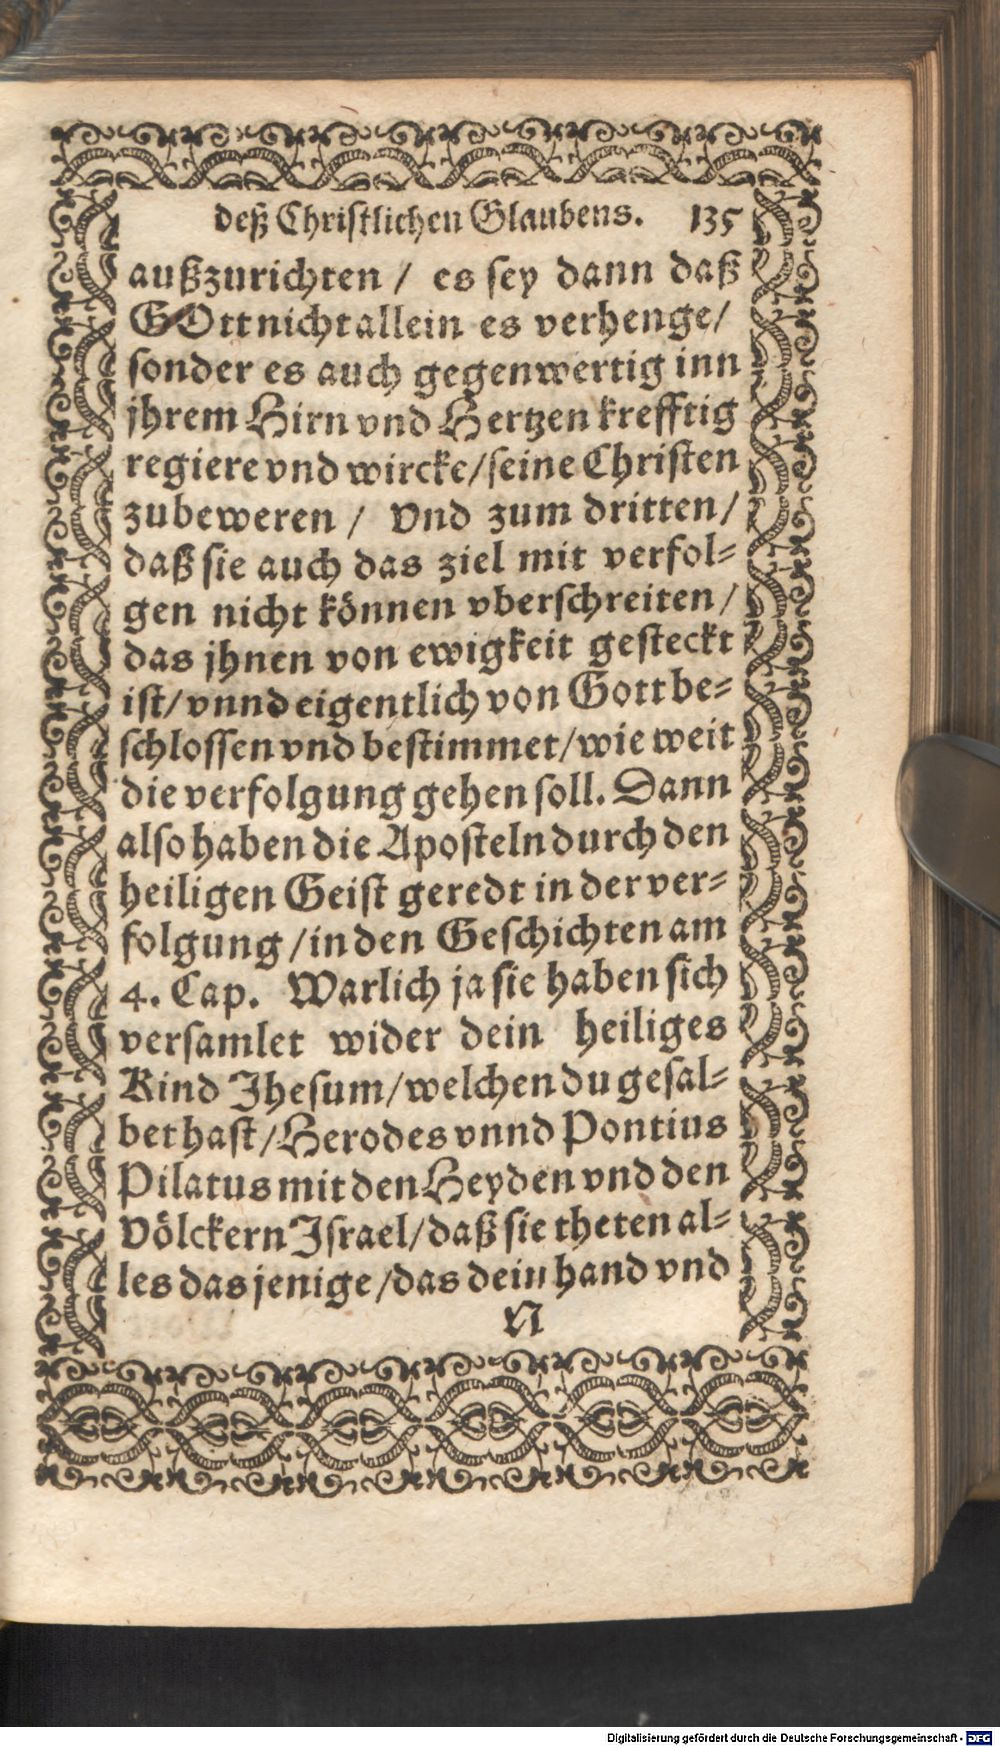 deß Christlichen Glaubens. 135
außzurichten / es sey dann daß
GOtt nicht allein es verhenge/
sonder es auch gegenwertig inn
jhrem Hirn vnd Hertzen krefftig
regiere vnd wircke/seine Christen
zubeweren / Vnd zum dritten/
daß sie auch das ziel mit verfol-
gen nicht können vberschreiten/
das jhnen von ewigkeit gesteckt
ist/ vnnd eigentlich von Gott be-
schlossen vnd bestimmet/wie weit
die verfolgung gehen soll. Dann
also haben die Aposteln durch den
heiligen Geist geredt in der ver-
folgung /in den Geschichten am
4. Cap. Warlich ja sie haben sich
versamlet wider dein heiliges
Kind Jhesum/welchen du gesal-
bet hast/Herodes vnnd Pontius
Pilatus mit den Heyden vnd den
Völckern Israel/daß sie theten al-
les das jenige /das dein hand vnd
N
Digitalisierung gefördert durch die Deutsche Forschungsgemeinschaft - DFG